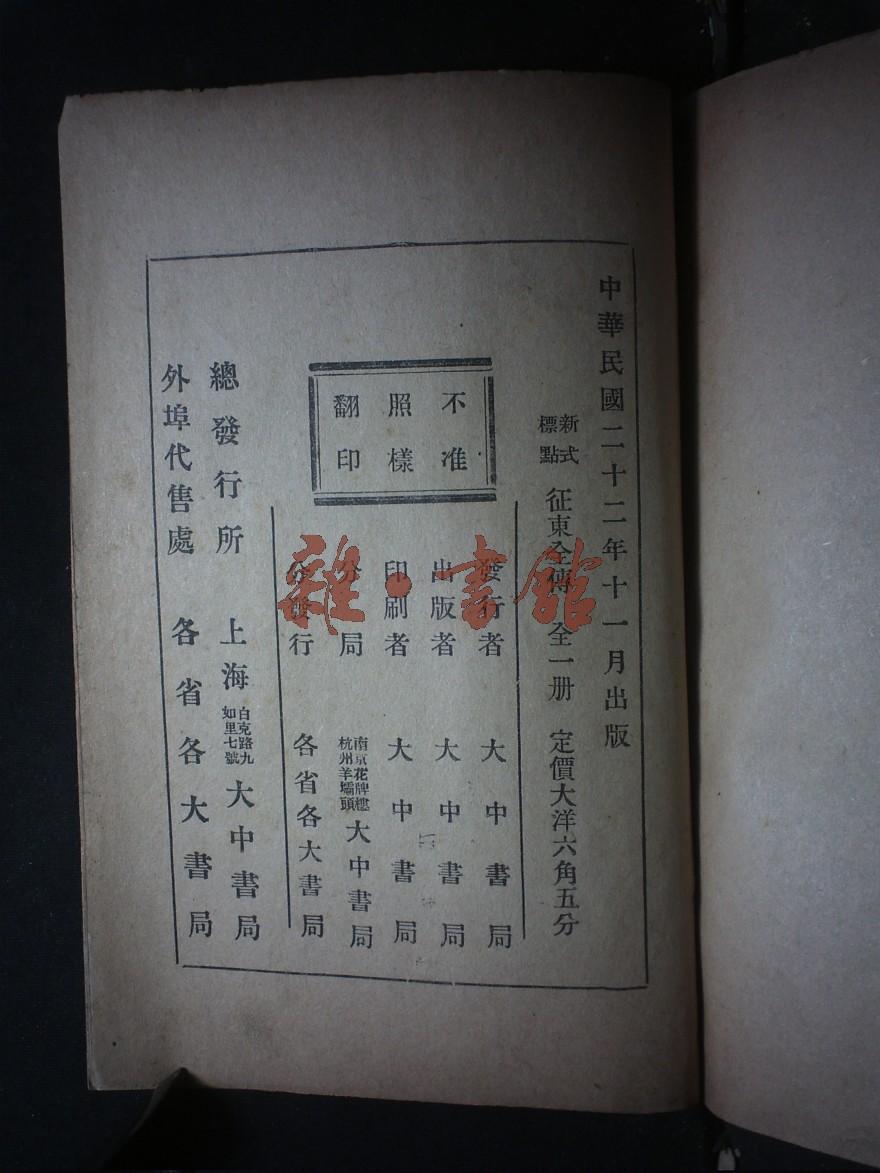 中華民國二十二年十一月出版
新式標點 征東全傳 全一册 定價大洋六角五分
不准
照樣
翻印
發行者 大中書局
出版者 大中書局
印刷者 大中書局
分局 南京花牌樓 杭州羊壩頭 大中書局
分發行 各省各大書局
總發行所 上海 白克路九如里七號 大中書局
外埠代售處 各省各大書局
雜·書館